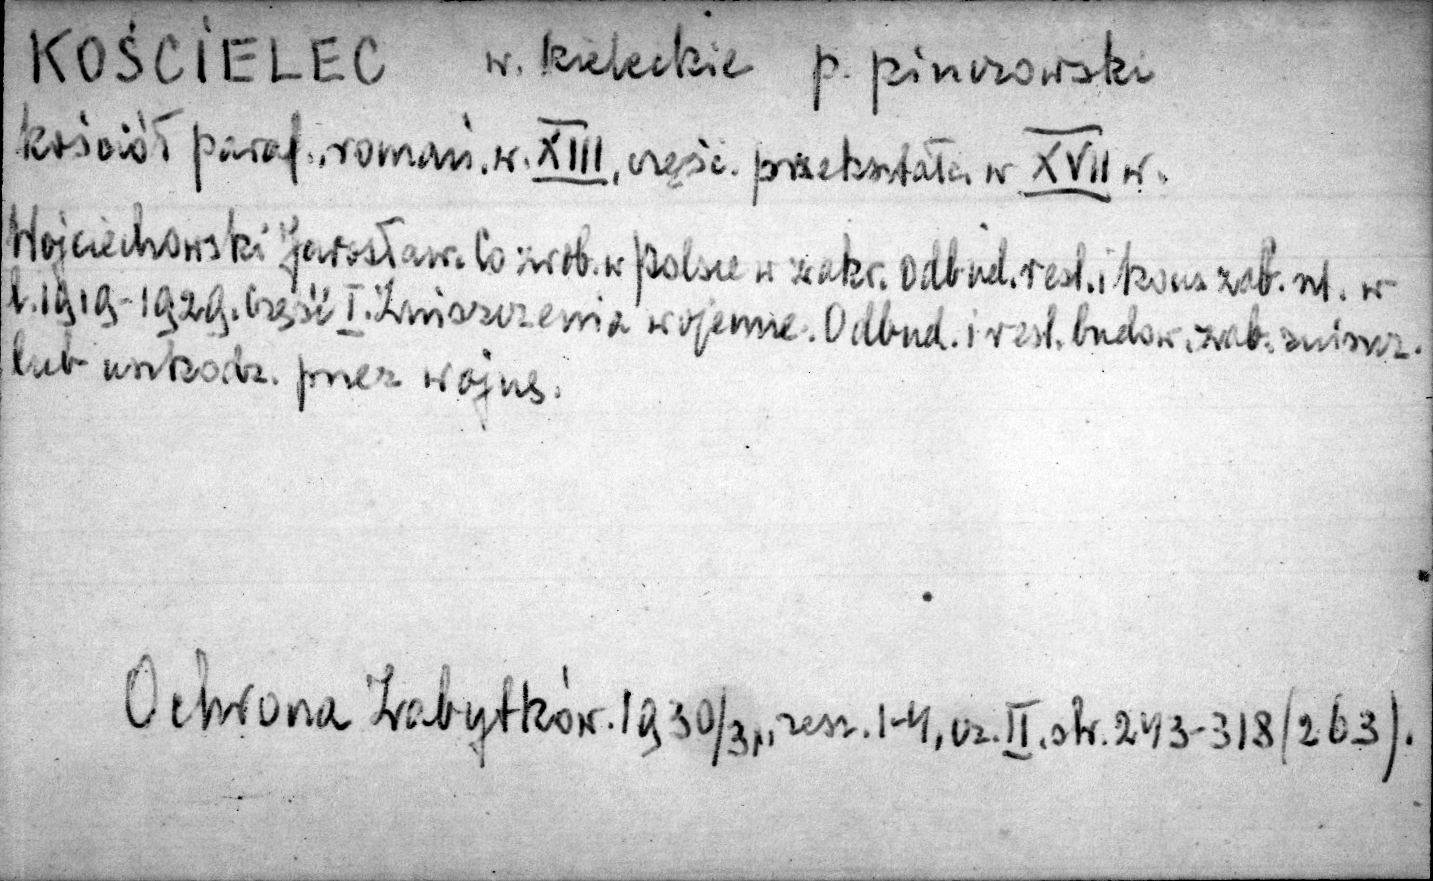 KOŚCIELEC w. kieleckie p. pinczowski
kościół paraf., romań. w. XIII, częśc. przekształc. w XVII w.
Wojciechowski Jarosław. Co zrob. w Polsce w zakr. odbud. rest. i kons. zab. szt. w
l. 1919-1929. Część I. Zniszczenia wojenne. Odbud. i rest. budow. zab. zniszcz.
lub uszkodz. przez wojnę.
Ochrona Zabytków. 1930/31, zesz. 1-4, cz. II, str. 243-318 (263).